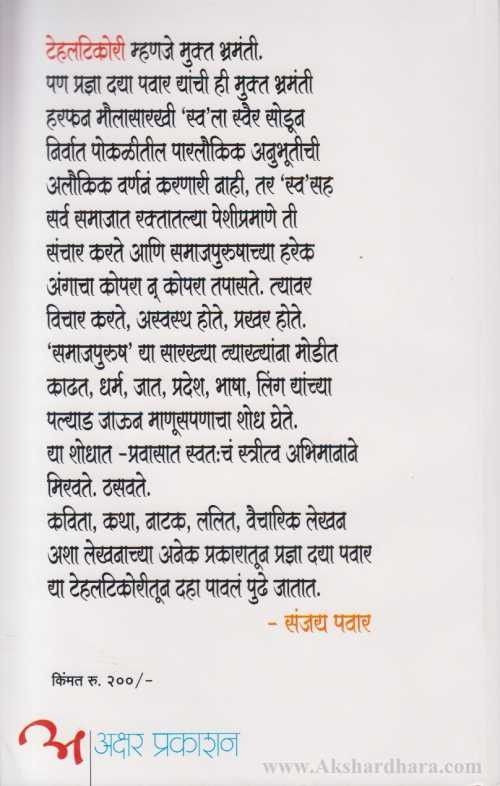 टेहलटिकोरी म्हणजे मुक्त भ्रमंती.
पण प्रज्ञा दया पवार यांची ही मुक्त भ्रमंती
हरफन मौलासारखी ‘स्व’ला स्वैर सोडून
निर्वात पोकळीतील पारलौकिक अनुभूतीची
अलौकिक वर्णनं करणारी नाही, तर ‘स्व’सह
सर्व समाजात रक्तातल्या पेशीप्रमाणे ती
संचार करते आणि समाजपुरुषाच्या हरेक
अंगाचा कोपरा न् कोपरा तपासते. त्यावर
विचार करते, अस्वस्थ होते, प्रखर होते.
‘समाजपुरुष’ या सारख्या व्याख्यांना मोडीत
काढत, धर्म, जात, प्रदेश, भाषा, लिंग यांच्या
पल्याड जाऊन माणूसपणाचा शोध घेते.
या शोधात -प्रवासात स्वतःचं स्त्रीत्व अभिमानाने
मिरवते. ठसवते.
कविता, कथा, नाटक, ललित, वैचारिक लेखन
अशा लेखनाच्या अनेक प्रकारातून प्रज्ञा दया पवार
या टेहलटिकोरीतून दहा पावलं पुढे जातात.
- संजय पवार
किंमत रु. २००/-
अ अक्षर प्रकाशन
www.Akshardhara.com